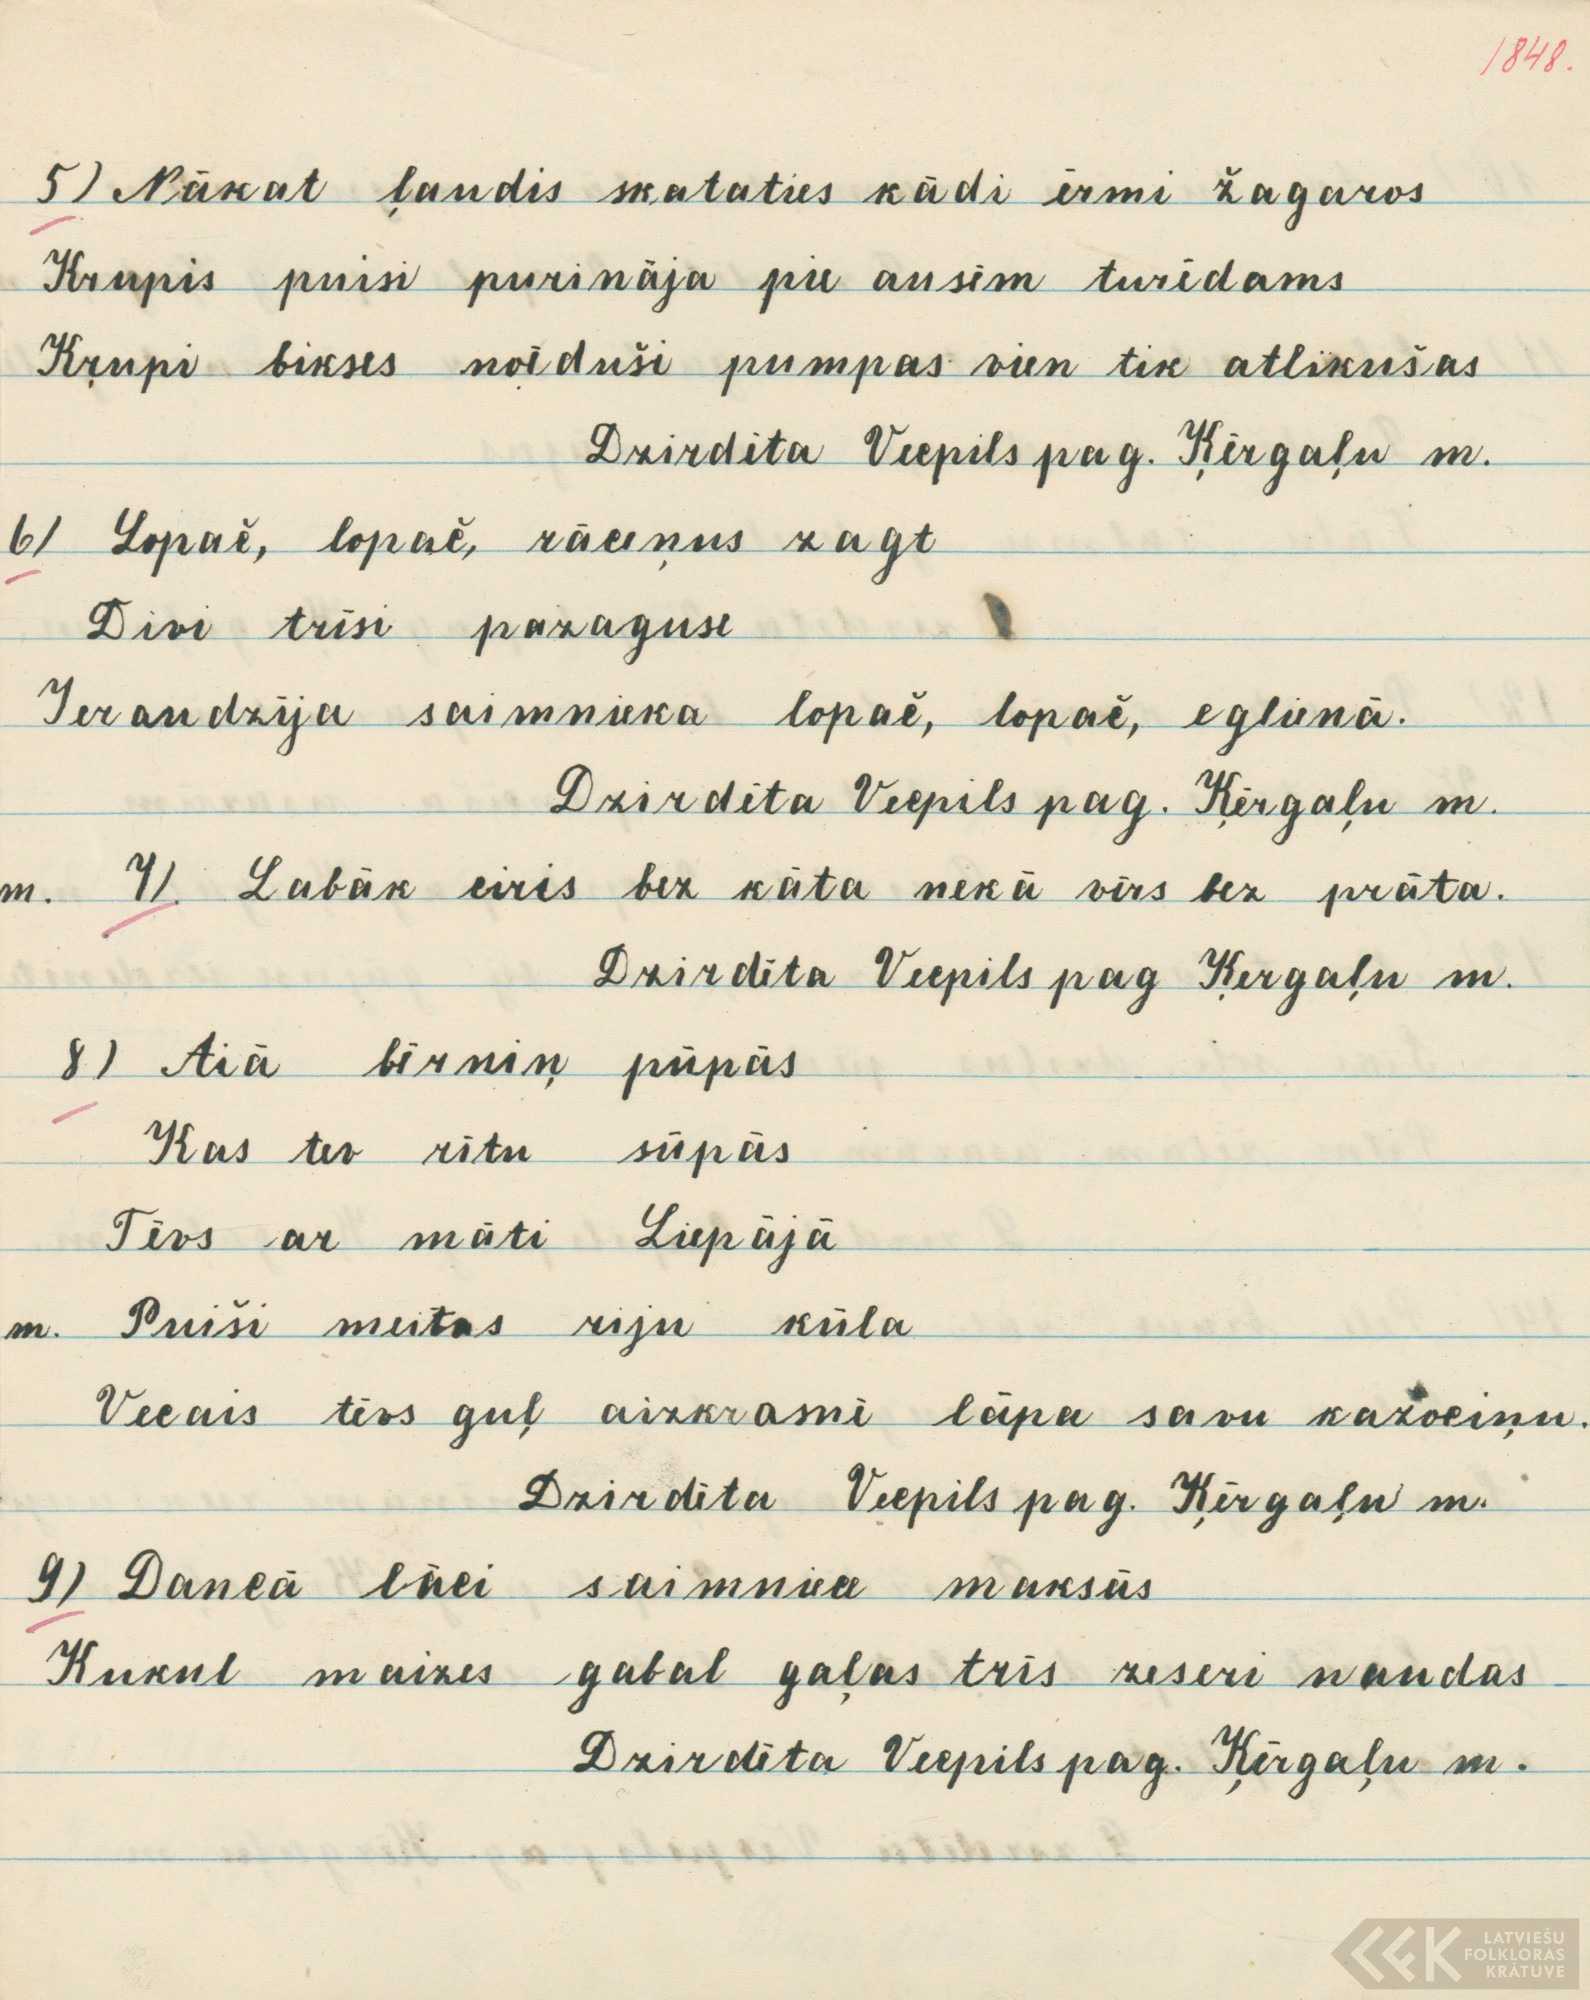 1848.
5) Nākat ļaudis skataties kādi ērmi žagaros
Krupis puisi purināja pie ausēm turēdams
Krupi bikses noēduši pumpas vien tik atlikušas
Dzirdēta Vecpils pag. Ķērgaļu m.
6) Lopač, lopač, rāceņus zagt
Divi trīsi pazaguse
Ieraudzīja saimnieka lopač, lopač, eglienā.
Dzirdēta Vecpils pag. Ķērgaļu m.
m. 7) Labāk ciris bez kāta nekā vīrs bez prāta.
Dzirdēta Vecpils pag Ķergaļu m.
8) Aiā bērniņ pūpās
Kas tev rītu sūpās
Tēvs ar māti Liepājā
m. Puiši meitas riju kūla
Vecais tēvs guļ aizkrasnē lāpa savu kažociņu.
Dzirdēta Vecpils pag. Ķērgaļu m.
9) Dancā lāci saimniece maksās
Kukul maizes gabal gaļas trīs zeseri naudas
Dzirdēta Vecpils pag. Ķērgaļu m.
LATVIEŠU
FOLKLORAS
KRĀTUVE